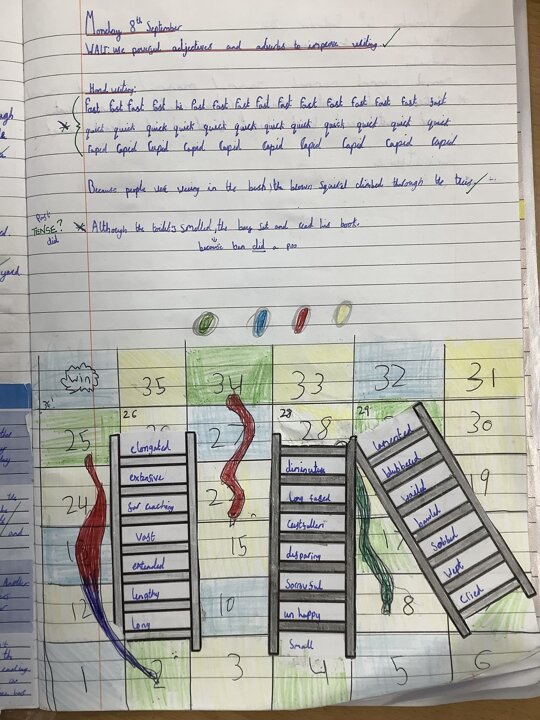 Monday 8th September
WALT: use powerful adjectives and adverbs to improve writing.
Handwriting:
Fast Fast Fast Fast Fast Fast Fast Fast Fast Fast Fast Fast Fast
quick quick quick quick quick quick quick quick quick quick quick
Rapid Rapid Rapid Rapid Rapid Rapid Rapid Rapid Rapid
Because people were in the bush, the brown squirel climbed through the
Past
TENSE?
did
Although the toilets smelled, the boy sat and read his book.
because ben did a poo
win 35 34 33 32 31
25 26 27 28 28 29 30
24 19
15
12 10 8
1 2 3 4 5 6
elongated
extensive
far reaching
Vast
extended
lengthy
long
diminutive
long faced
Crestfallen
despairing
Sorrowful
un happy
Small
lamented
blubbered
wailed
bawled
Sobbed
Wept
Cried